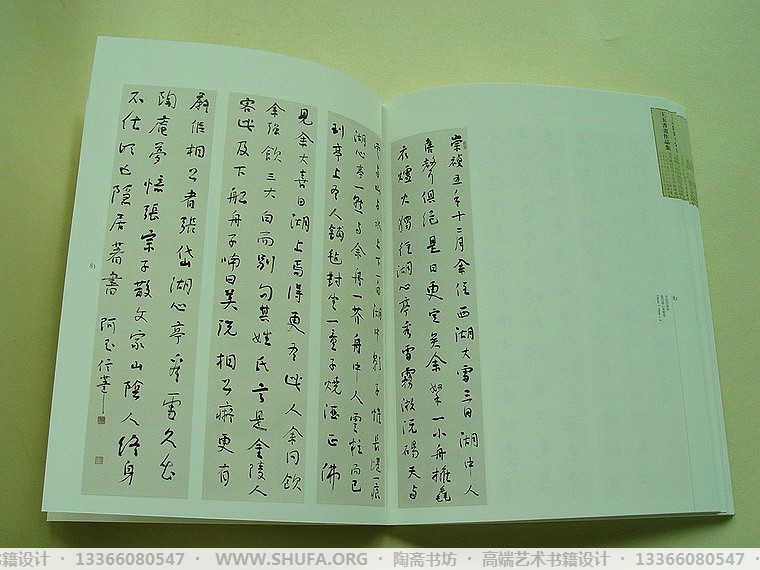 王友谊书画作品集
82
崇禎五年十二月余住西湖大雪三日湖中人
鳥聲俱絕是日更定矣余拏一小舟擁毳
衣爐火獨往湖心亭看雪霧凇沆碭天與
雲與山與水上下一白湖中影子惟長堤一痕
湖心亭一點與余舟一芥舟中人兩粒而已
到亭上有人鋪氈對坐一童子燒酒正沸
見余大喜曰湖上焉得更有此人余同飲
余強飲三大白而別問其姓氏言是金陵人
客此及下船舟子喃曰莫說相公癡更有
癡似相公者張岱湖心亭看雪久出
陶庵夢憶張宗子散文家山陰人終身
不仕明亡隱居著書
83
籍设计 · 13366080547 · WWW.SHUFA.ORG · 陶斋书坊 · 高端艺术书籍设计 · 13366080547 ·